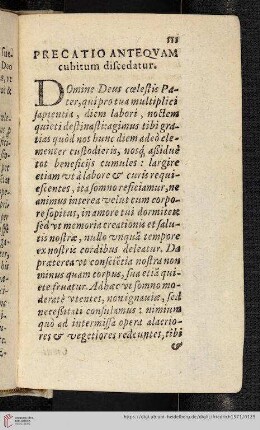 111
PRECATIO ANTEQVAM
cubitum discedatur.
DOmine Deus cœlestis Pa-
ter, qui pro tua multiplici
sapientia, diem labori, noctem
quieti destinasti: agimus tibi gra-
tias quòd nos hunc diem adeò cle-
menter custodieris, nosq́; assiduè
tot beneficijs cumules: largire
etiam vt à labore & curis requi-
escentes, ita somno reficiamur, ne
animus interea velut cum corpo-
re sopitus, in amore tui dormitet:
sed vt memoria creationis et salu-
tis nostræ, nullo vnquā tempore
ex nostris cordibus deleatur. Da
præterea vt consciētia nostra non
minus quam corpus, sua etiā qui-
ete fruatur. Adhæc vt somno mo-
deratè vtentes, non ignauiæ, sed
necessitati consulamus: nimirum
quò ad intermissa opera alacrio-
res & vegetiores redeuntes, tibi
&
https://digi.ub.uni-heidelberg.de/diglit/friedrich1571/0123